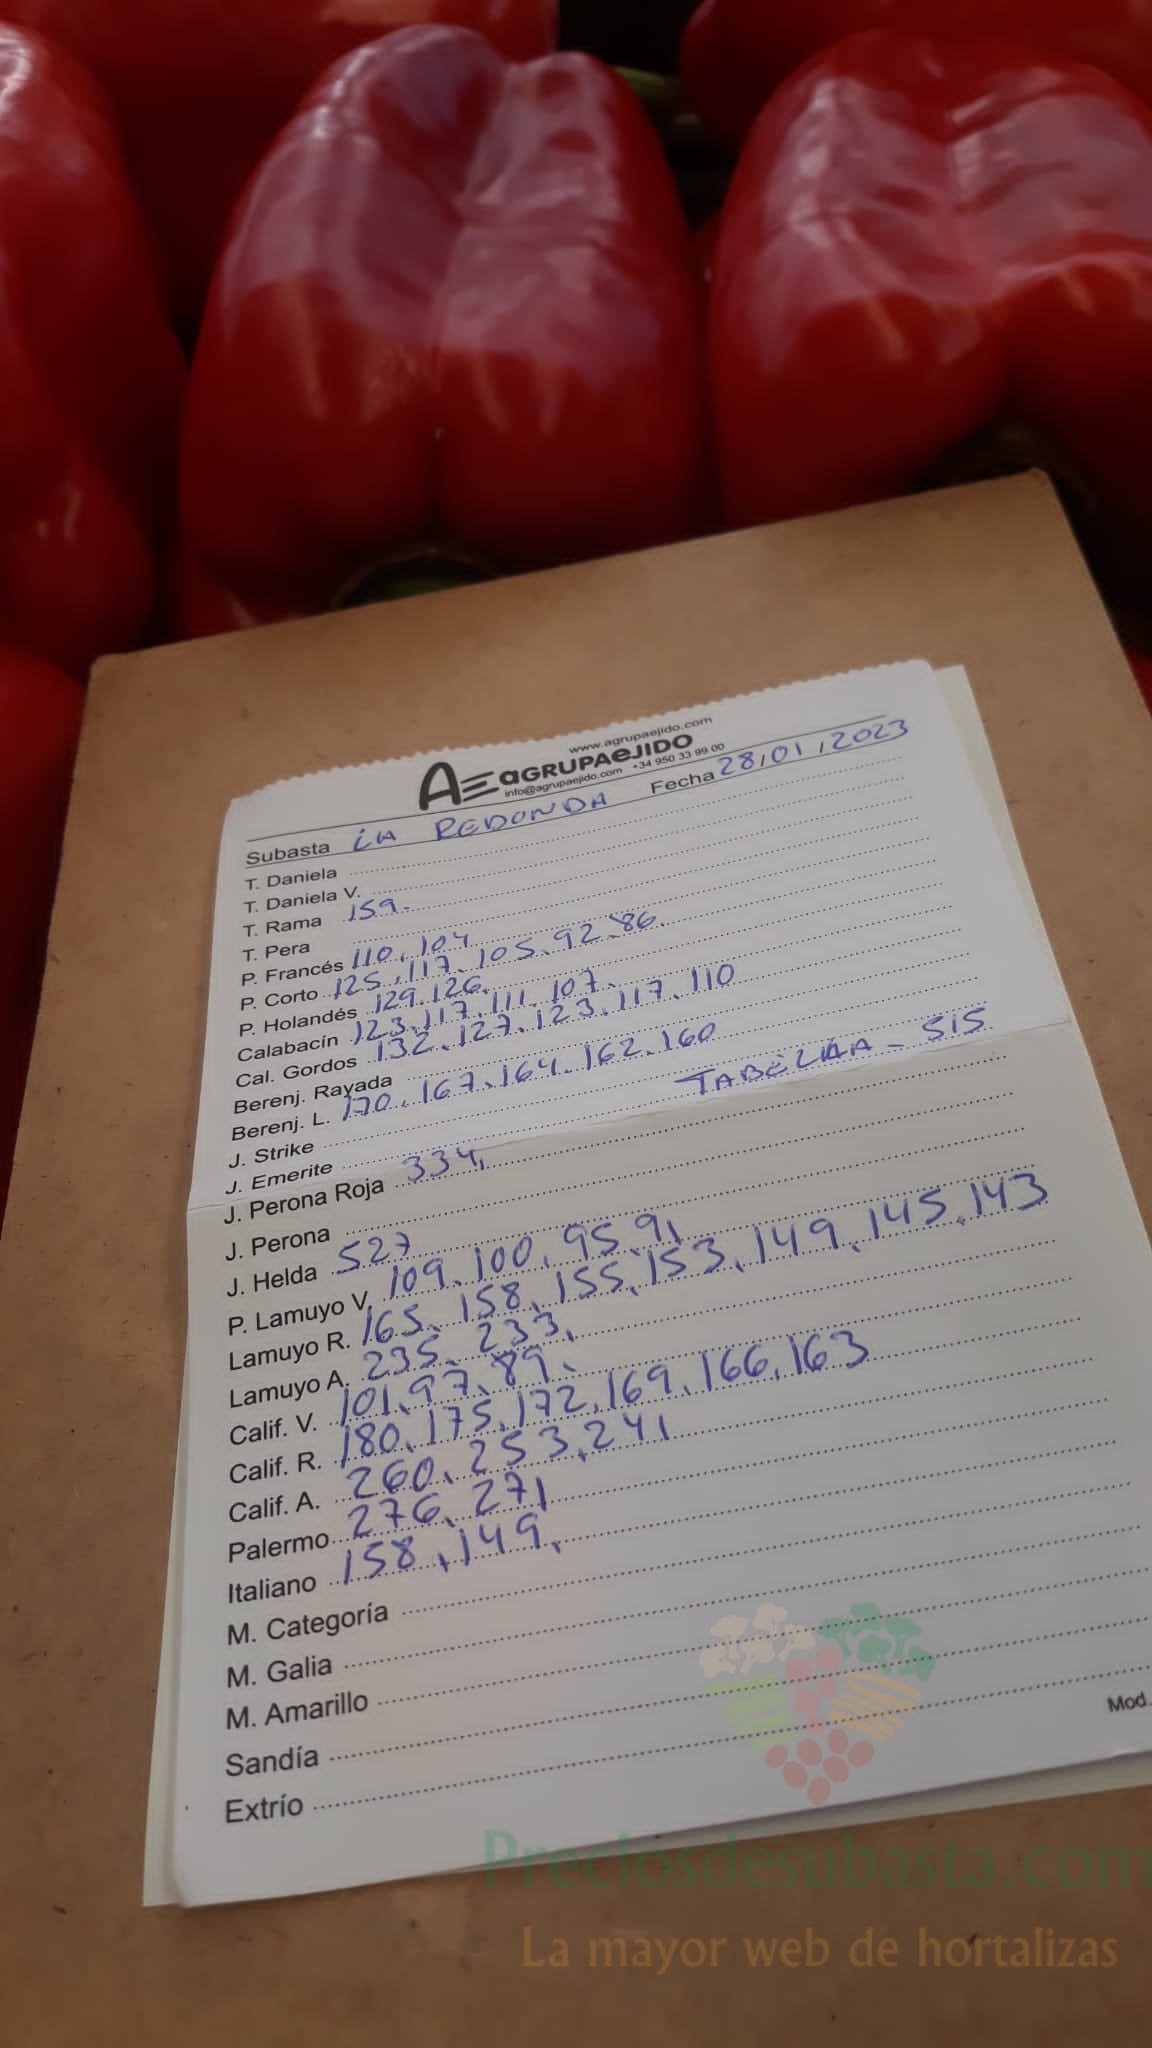 www.agrupaejido.com
AGRUPAEJIDO
info@agrupaejido.com +34 950 33 99 00
Subasta LA REDONDA Fecha 28/01/2023
T. Daniela
T. Daniela V.
T. Rama 159.
T. Pera
P. Francés 110, 104
P. Corto 125, 117, 105, 92, 86.
P. Holandés 129, 126.
Calabacín 123, 117, 111, 107.
Cal. Gordos 132, 127, 123, 117, 110
Berenj. Rayada
Berenj. L. 170, 167, 164, 162, 160
J. Strike
J. Emerite TABELLA - 515
J. Perona Roja 334,
J. Perona
J. Helda 527
P. Lamuyo V. 109, 100, 95, 91
Lamuyo R. 165, 158, 155, 153, 149, 145, 143
Lamuyo A. 235, 233,
Calif. V. 101, 97, 89,
Calif. R. 180, 175, 172, 169, 166, 163
Calif. A. 260, 253, 241
Palermo 276, 271
Italiano 158, 149,
M. Categoría
M. Galia
M. Amarillo
Sandía
Extrío
Mod.
Preciosdesubasta.com
La mayor web de hortalizas